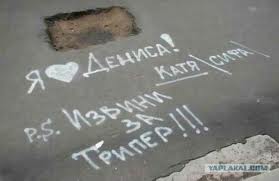 Я ♥ Дениса!
Катя\Сифа\
P.S. Извини
за
Трипер!!!
YAPLAKAL.COM